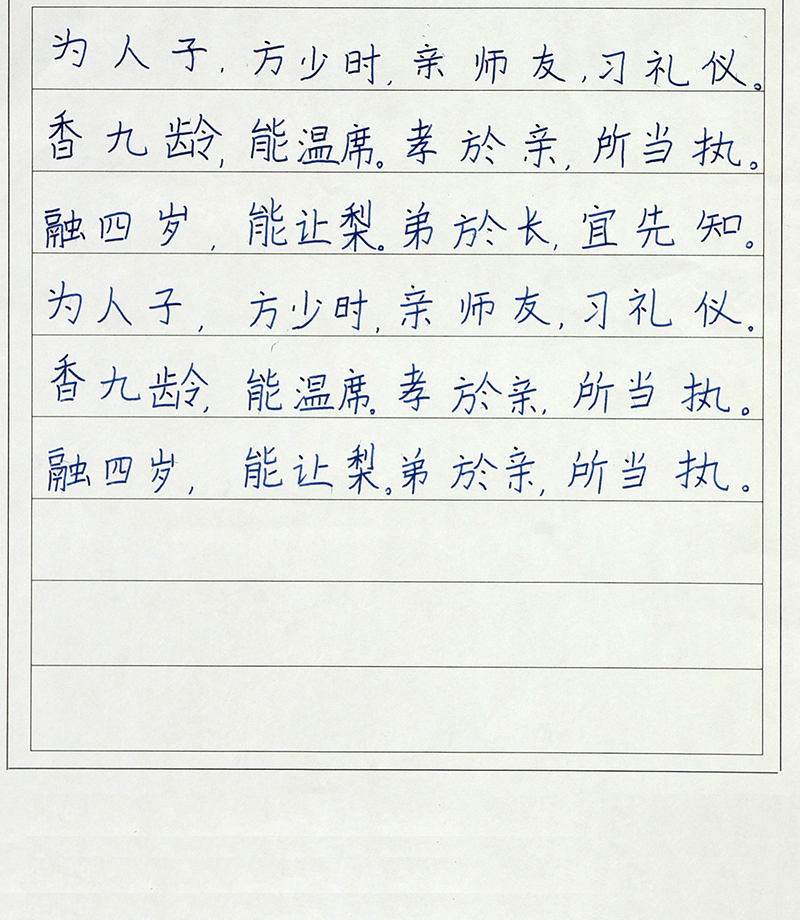 为人子，方少时，亲师友，习礼仪。
香九龄，能温席。孝於亲，所当执。
融四岁，能让梨。弟於长，宜先知。
为人子，方少时，亲师友，习礼仪。
香九龄，能温席。孝於亲，所当执。
融四岁，能让梨。弟於亲，所当执。